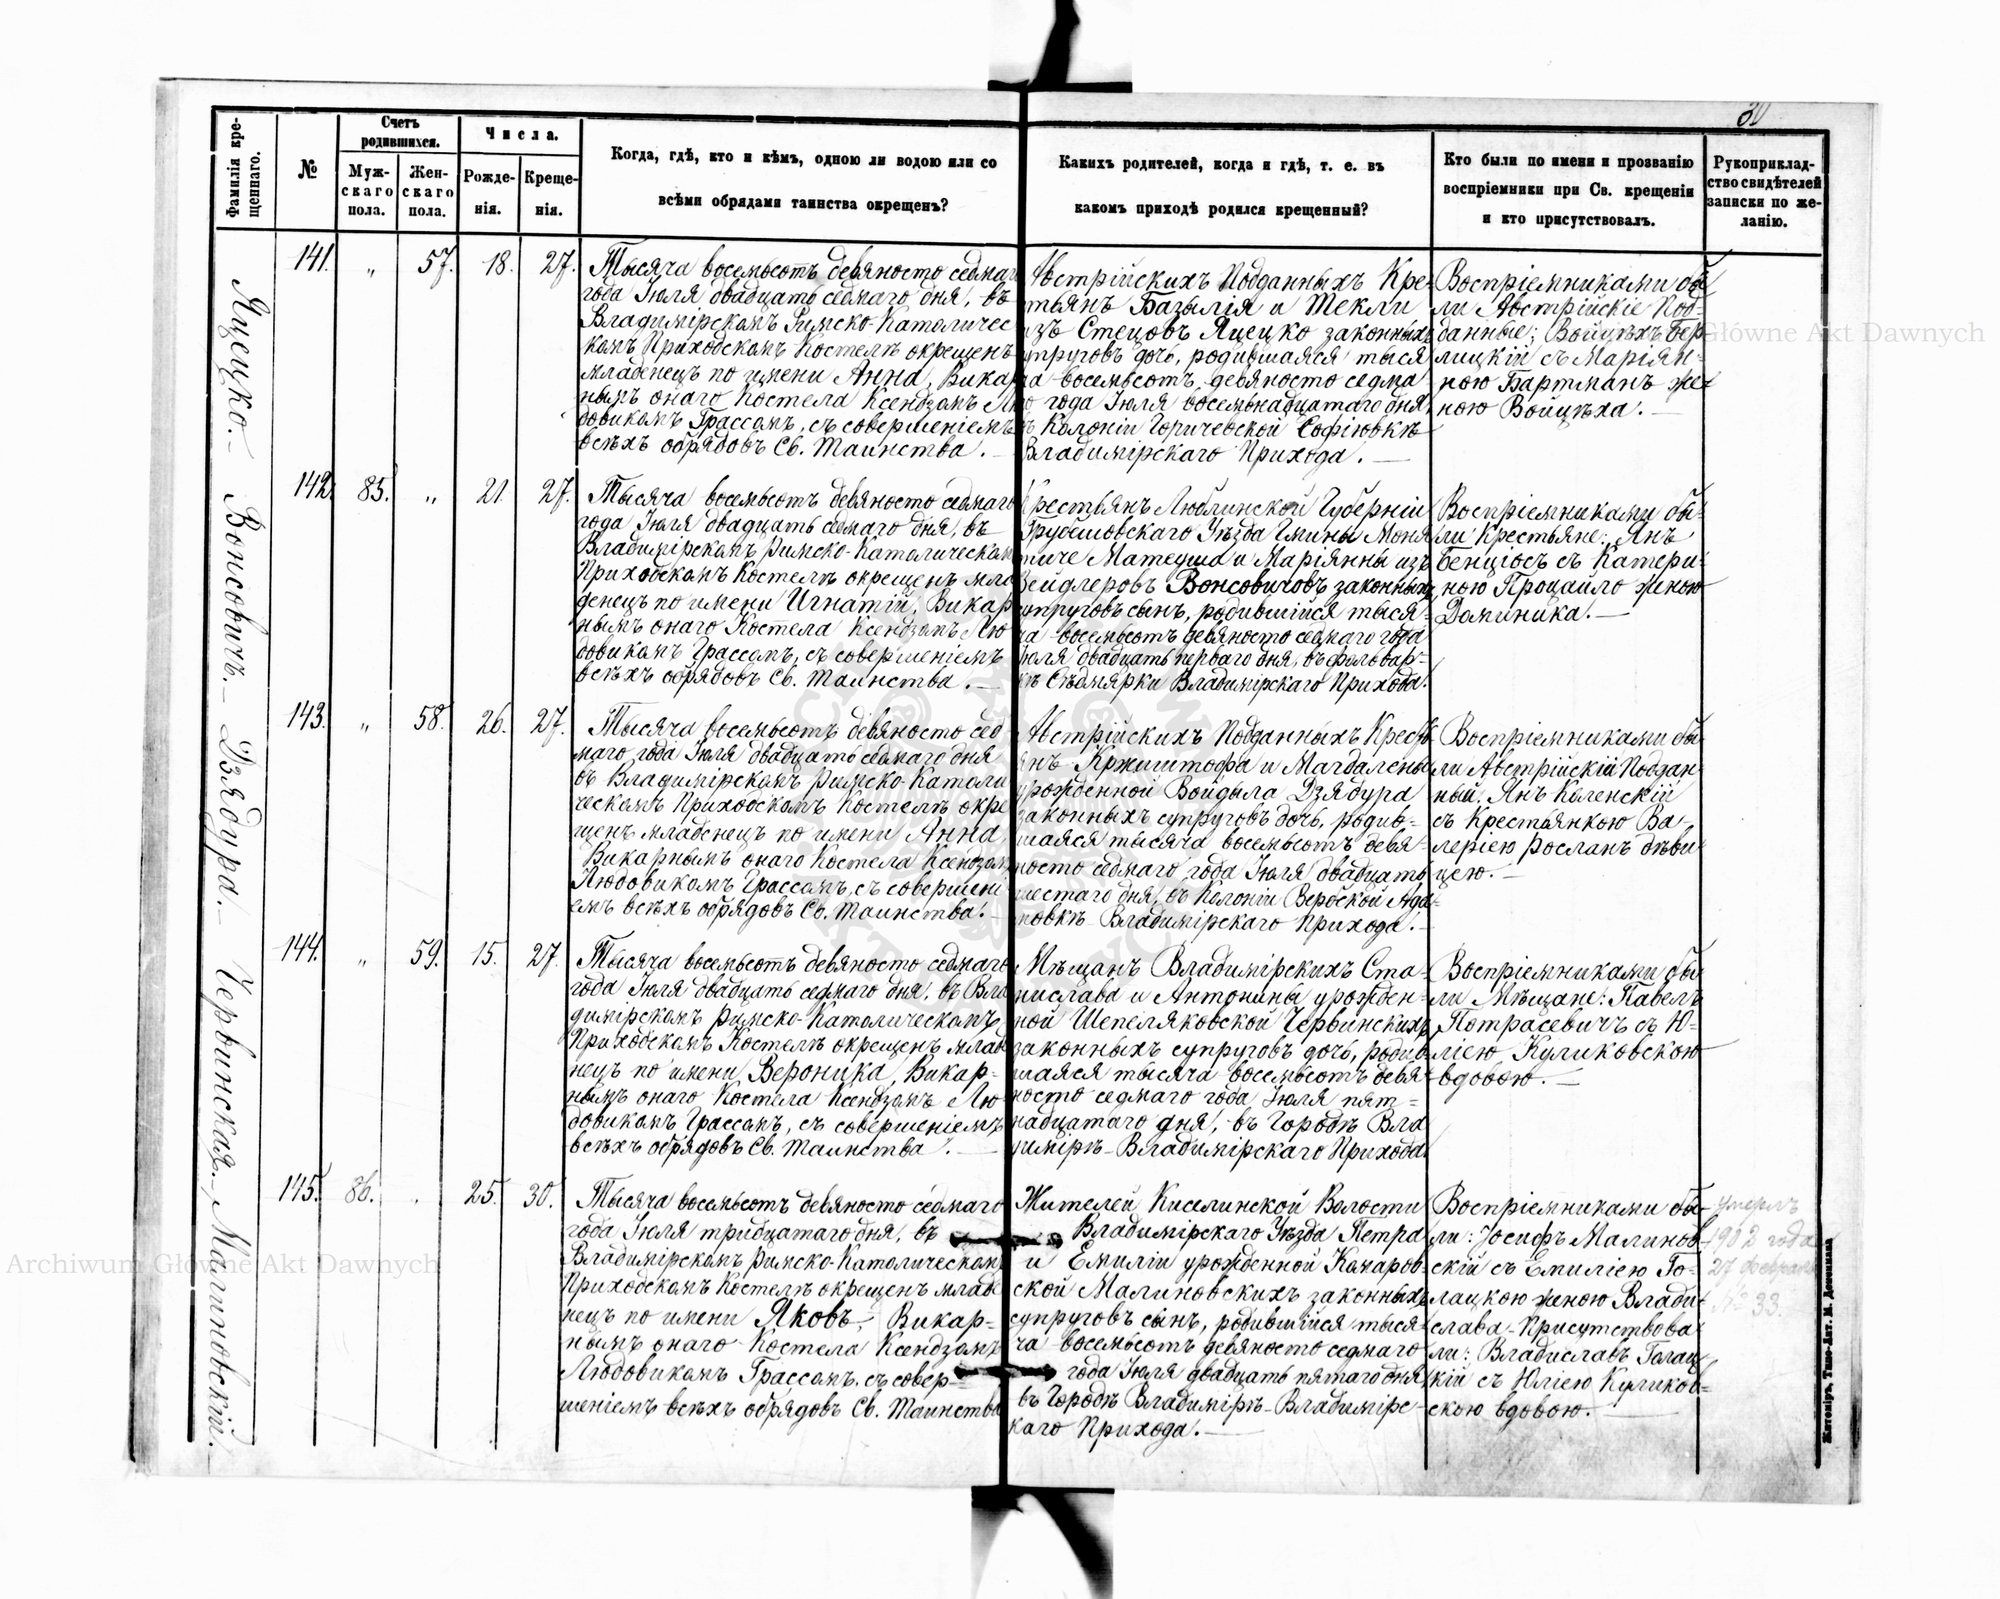 30
Фамилія кре-
щеннаго.
№
Счетъ
родившихся.
Муж-
скаго
пола.
Жен-
скаго
пола.
Числа.
Рожде-
нія.
Креще-
нія.
Когда, гдѣ, кто и кѣмъ, одною ли водою или со
всѣми обрядами таинства окрещенъ?
Какихъ родителей, когда и гдѣ, т. е. въ
какомъ приходѣ родился крещенный?
Кто были по имени и прозванію
воспріемники при Св. крещеніи
и кто присутствовалъ.
Рукоприклад-
ство свидѣтелей
записки по же-
ланію.
Яцецко.
141. „ 57. 18. 27.
Тысяча восемьсотъ девяносто седмаго
года Іюля двадцать седмаго дня, въ
Владимірскомъ Римско-Католичес
комъ Приходскомъ Костелѣ окрещенъ
младенецъ по имени Анна, Викар
нымъ онаго Костела Ксендзомъ Лю
довикомъ Грассомъ, съ совершеніемъ
всѣхъ обрядовъ Св. Таинства.
Австрійскихъ Подданныхъ Кре-
тьянъ Базылія и Текли
изъ Стецовъ Яцецко законныхъ
супруговъ дочь, родившаяся тыся
ча восемьсотъ девяносто седма
го года Іюля восемьнадцатаго дня,
въ Колоніи Горичевской Софіювкѣ
Владимірскаго Прихода.
Воспріемниками бы
ли Австрійскіе Под-
данные: Войцѣхъ Бер
лицкій съ Маріян-
ною Бартманъ же-
ною Войцѣха.
Вонсовичъ.
142. 85. „ 21. 27.
Тысяча восемьсотъ девяносто седмаго
года Іюля двадцать седмаго дня, въ
Владимірскомъ Римско-Католическомъ
Приходскомъ Костелѣ окрещенъ мла
денецъ по имени Игнатій, Викар
нымъ онаго Костела Ксендзомъ Лю
довикомъ Грассомъ, съ совершеніемъ
всѣхъ обрядовъ Св. Таинства.
Крестьянъ Люблинской Губерніи
Грубешовскаго Уѣзда Гмины Моня
тиче Матеуша и Маріянны изъ
Зейдлеровъ Вонсовичовъ законныхъ
супруговъ сынъ, родившійся тыся-
ча восемьсотъ девяносто седмаго года
Іюля двадцать перваго дня, въ фольвар-
кѣ Сѣдмярки Владимірскаго Прихода.
Воспріемниками бы-
ли Крестьяне: Янъ
Бенціосъ съ Катери-
ною Процайло женою
Доминика.
Дзядура.
143. „ 58. 26. 27.
Тысяча восемьсотъ девяносто сед-
маго года Іюля двадцать седмаго дня
въ Владимірскомъ Римско-Католи
ческомъ Приходскомъ Костелѣ окре
щенъ младенецъ по имени Анна,
Викарнымъ онаго Костела Ксендзомъ
Людовикомъ Грассомъ, съ совершені
емъ всѣхъ обрядовъ Св. Таинства.
Австрійскихъ Подданныхъ Кресть-
янъ Кржиштофа и Магдалены
урожденной Войдыла Дзядура
законныхъ супруговъ дочь, родив-
шаяся тысяча восемьсотъ девя-
носто седмаго года Іюля двадцать
шестаго дня, въ Колоніи Вербской Ада-
мовкѣ Владимірскаго Прихода.
Воспріемниками бы-
ли Австрійскій Поддан
ный: Янъ Коленскій
съ Крестьянкою Ва-
леріею Росланъ дѣви
цею.
Червинская.
144. „ 59. 15. 27.
Тысяча восемьсотъ девяносто седмаго
года Іюля двадцать седмаго дня, въ Вла
димірскомъ Римско-Католическомъ
Приходскомъ Костелѣ окрещенъ младе
нецъ по имени Вероника, Викар-
нымъ онаго Костела Ксендзомъ Лю-
довикомъ Грассомъ, съ совершеніемъ
всѣхъ обрядовъ Св. Таинства.
Мѣщанъ Владимірскихъ Ста-
нислава и Антонины урожден-
ной Шепеляковской Червинскихъ
законныхъ супруговъ дочь, родив
шаяся тысяча восемьсотъ девя-
носто седмаго года Іюля пят-
надцатаго дня, въ Городѣ Вла
димірѣ Владимірскаго Прихода
Воспріемниками бы-
ли Мѣщане: Павелъ
Потрасевичъ съ Ю-
ліею Куликовскою
вдовою.
Малиновскій.
145. 86. 25. 30.
Тысяча восемьсотъ девяносто седмаго
года Іюля тридцатаго дня, въ
Владимірскомъ Римско-Католическомъ
Приходскомъ Костелѣ окрещенъ младе
нецъ по имени Яковъ, Викар-
нымъ онаго Костела Ксендзомъ
Людовикомъ Грассомъ, съ совер-
шеніемъ всѣхъ обрядовъ Св. Таинства
Жителей Киселинской Волости
Владимірскаго Уѣзда Петра
и Емиліи урожденной Комаров-
ской Малиновскихъ законныхъ
супруговъ сынъ, родившійся тыся-
ча восемьсотъ девяносто седмаго
года Іюля двадцать пятаго дня,
въ Городѣ Владимірѣ Владимірс-
каго Прихода.
Воспріемниками бы-
ли: Іосифъ Малинов-
скій съ Емиліею Го-
лацкою женою Влади-
слава. Присутствова
ли: Владиславъ Голац
кій съ Юліею Куликов-
скою вдовою.
Умеръ
1902 года
27 февраля
№ 33.
Житоміръ, Типо-Лит. М. Дененмана
Archiwum Główne Akt Dawnych
Główne Akt Dawnych